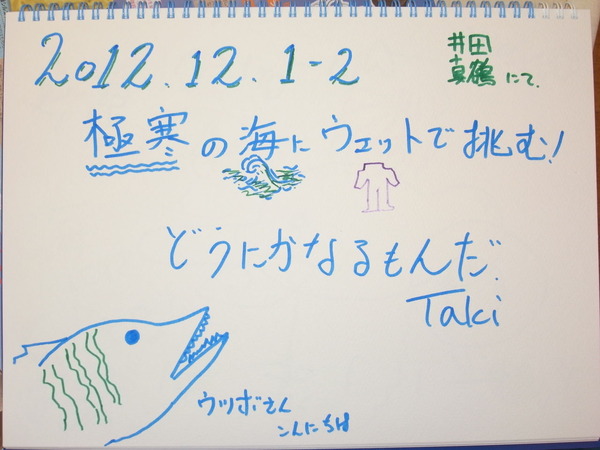 2012.12.1-2
井田
真鶴にて.
極寒の海にウェットで挑む!
どうにかなるもんだ.
Taki
ウツボさん
こんにちは